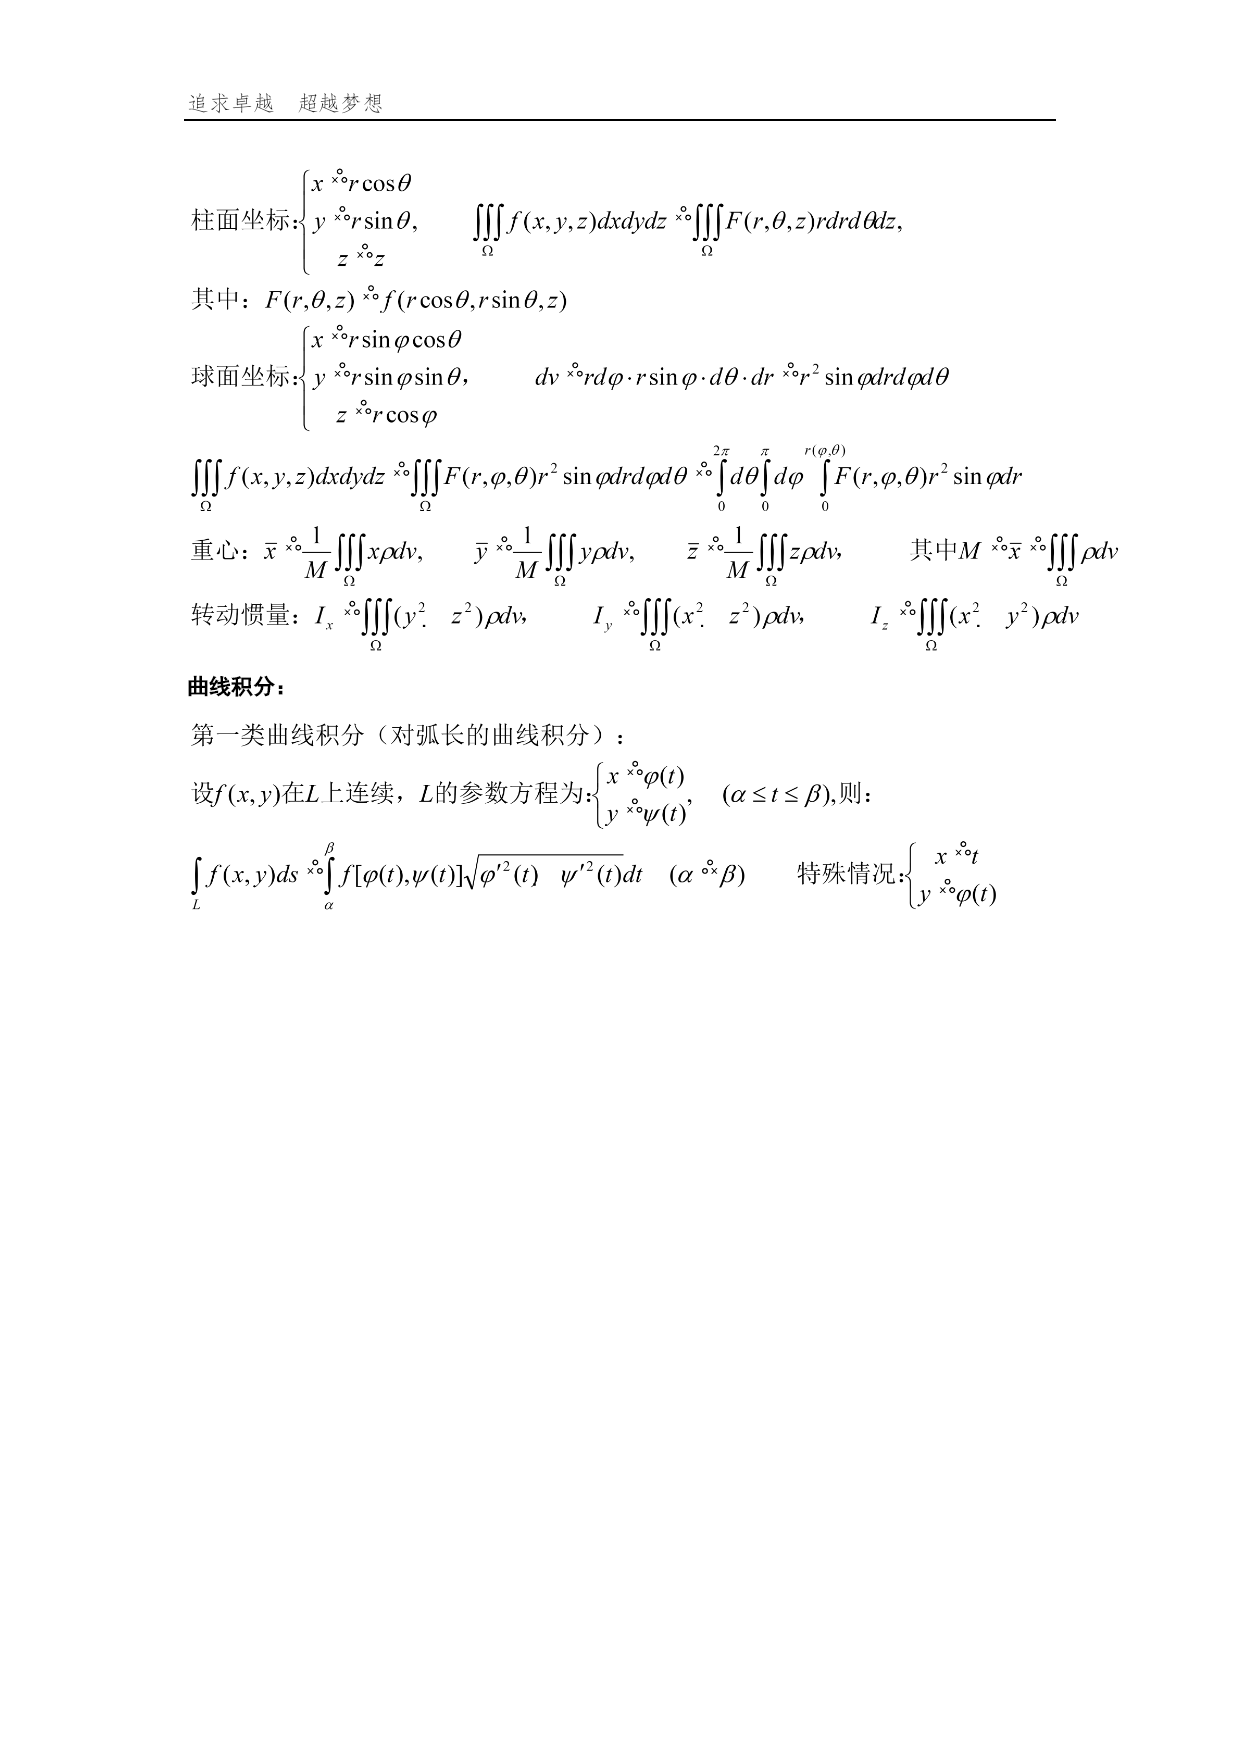 追求卓越 超越梦想
柱面坐标:{x = rcosθ
y = rsinθ,
z = z  ∭_Ω f(x,y,z)dxdydz = ∭_Ω F(r,θ,z)rdrdθdz,
其中：F(r,θ,z) = f(rcosθ,rsinθ,z)
球面坐标:{x = rsinφcosθ
y = rsinφsinθ,
z = rcosφ  dv = rdφ·rsinφ·dθ·dr = r² sinφdrdφdθ
∭_Ω f(x,y,z)dxdydz = ∭_Ω F(r,φ,θ)r² sinφdrdφdθ = ∫_0^{2π} dθ ∫_0^π dφ ∫_0^{r(φ,θ)} F(r,φ,θ)r² sinφdr
重心：x̄ = 1/M ∭_Ω xρdv,  ȳ = 1/M ∭_Ω yρdv,  z̄ = 1/M ∭_Ω zρdv，  其中M = x̄ = ∭_Ω ρdv
转动惯量：I_x = ∭_Ω (y² z²)ρdv，  I_y = ∭_Ω (x² z²)ρdv，  I_z = ∭_Ω (x² y²)ρdv
曲线积分：
第一类曲线积分（对弧长的曲线积分）：
设f(x,y)在L上连续，L的参数方程为:{x = φ(t)
y = ψ(t),  (α ≤ t ≤ β),则：
∫_L f(x,y)ds = ∫_α^β f[φ(t),ψ(t)]√(φ′²(t) ψ′²(t))dt  (α β)  特殊情况:{x = t
y = φ(t)